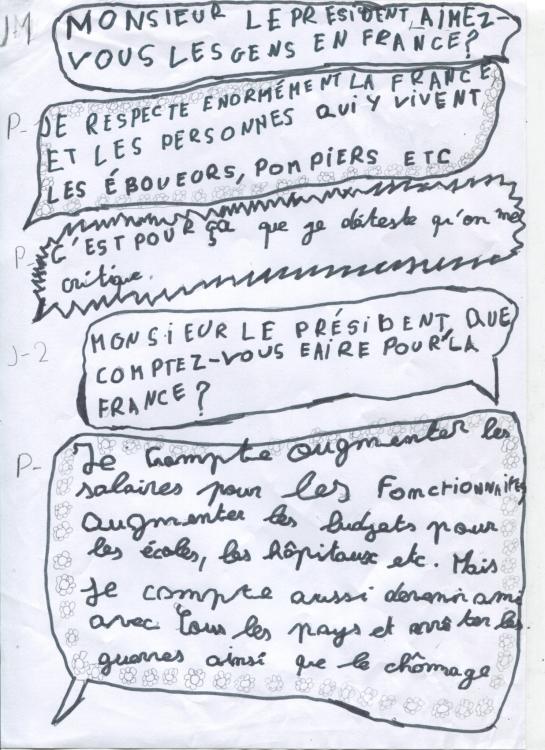 J-1
MONSIEUR LE PRÉSIDENT, AIMEZ-
VOUS LES GENS EN FRANCE?
P-
JE RESPECTE ENORMÉMENT LA FRANCE
ET LES PERSONNES QUI Y VIVENT
LES ÉBOUEORS, POMPIERS ETC
P-
C'EST POUR ça que je déteste qu'on me
critique.
J-2
MONSIEUR LE PRÉSIDENT, QUE
COMPTEZ-VOUS FAIRE POUR LA
FRANCE?
P-
Je compte augmenter les
salaires pour les FONCTIONNAIRES
augmenter les budgets pour
les écoles, les hôpitaux etc. Mais
Je compte aussi devenir ami
avec tous les pays et arrêter les
guerres ainsi que le chômage